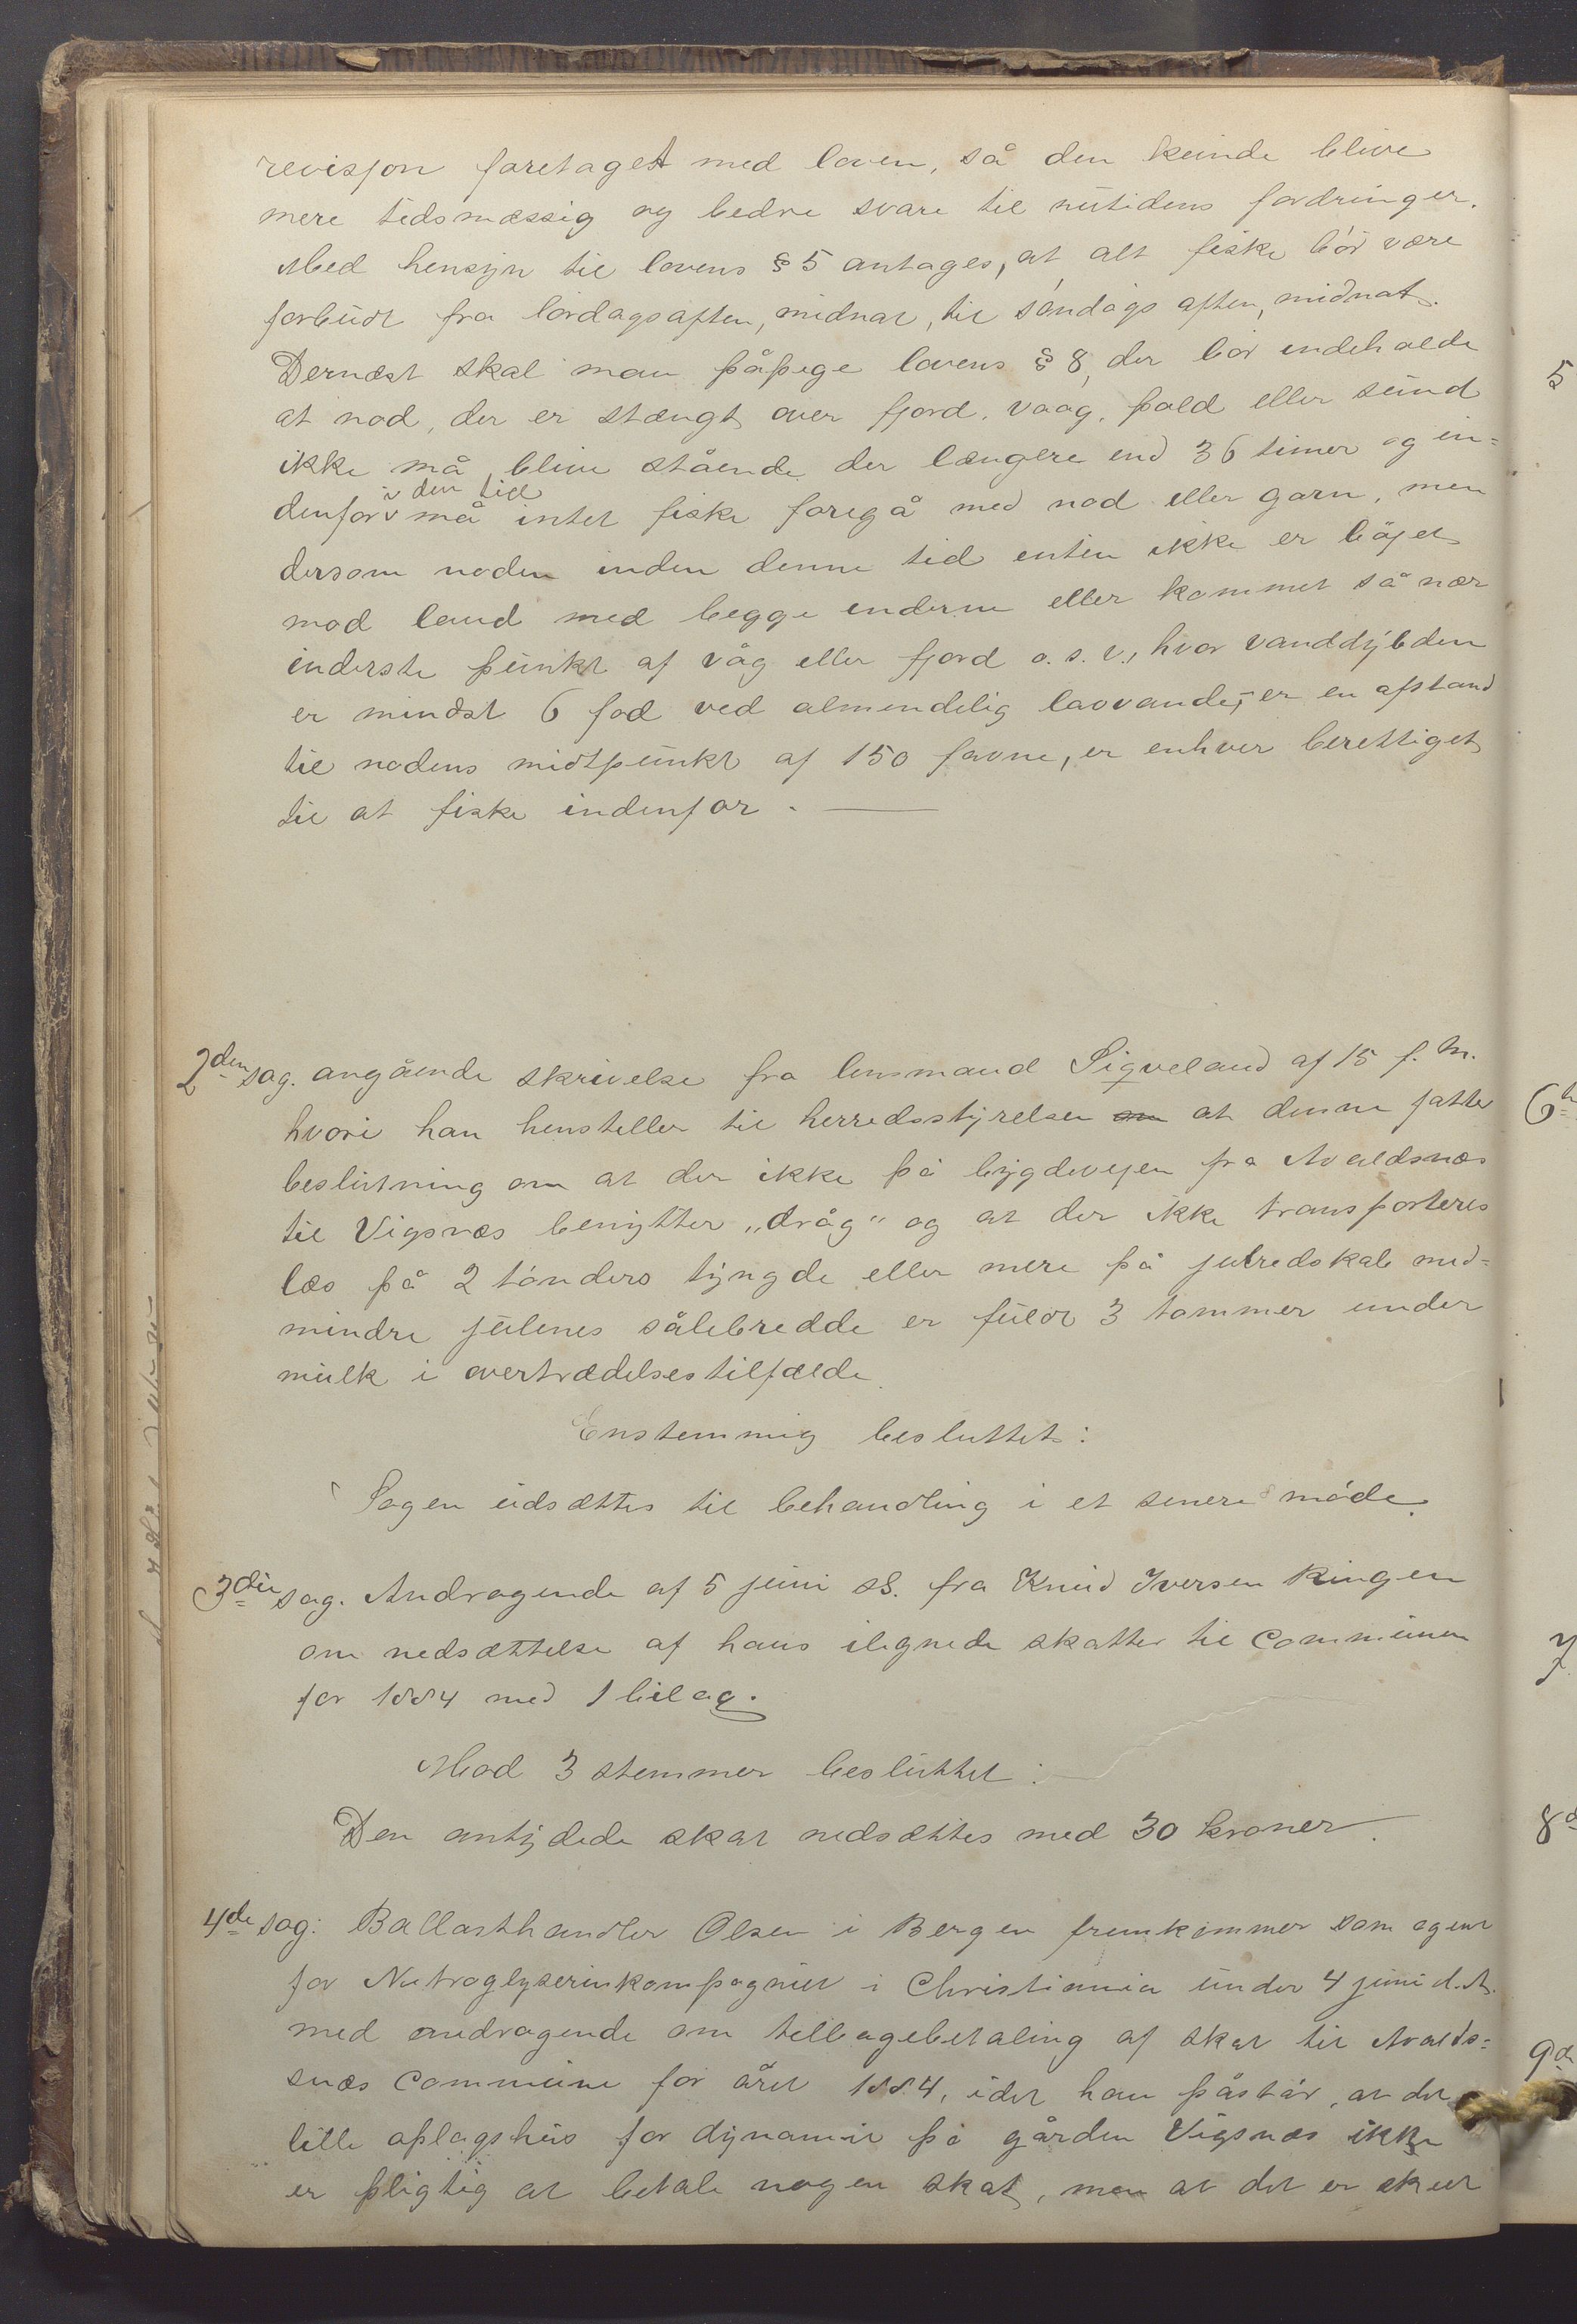 revisjon foretaget med loven, så den kunde blive
mere tidsmæssig og bedre svare til nutidens fordringer.
Med hensyn til lovens § 5 antages, at alt fiske bör være
forbudt fra lördagsaften, midnat, til söndags aften, midnat.
Dernæst skal man påpege lovens § 8, der bör indeholde
at nod, der er stængt over fjord, vaag, pold eller sund
ikke må blive stående der længere end 36 timer og in=
denfor i den tid må intet fiske foregå med nod eller garn, men
dersom noden inden denne tid enten ikke er böjet
mod land med begge enderne eller kommet så nær
inderste punkt af våg eller fjord o. s. v., hvor vanddybden
er mindst 6 fod ved almindelig lavvande, er en afstand
til nodens midtpunkt af 150 favne, er enhver berettiget
til at fiske indenfor. —
2den sag. angående skrivelse fra lensmand Siqveland af 15 f. M.
hvori han henstiller til herredsstyrelsen om at denne fatter
beslutning om at der ikke på bygdevejen fra Avaldsnæs
til Vigsnæs benytter „dråg" og at der ikke transporteres
læs på 2 tönders tyngde eller mere på julredskab med=
mindre julenes sålebredde er fuldt 3 tommer under
mulk i overtrædelsestilfælde.
Enstemmig besluttet:
Sagen udsættes til behandling i et senere möde.
3die sag. Andragende af 5 juni ds. fra Knud Iversen Ringen
om nedsættelse af hans ilignede skatter til Communen
for 1884 med 1 bilag.
Mod 3 stemmer besluttet:
Den antydede skat nedsættes med 30 kroner.
4de sag: Ballasthandler Olsen i Bergen fremkommer som agent
for Nitroglyserinkompagniet i Christiania under 4 juni d. A.
med andragende om tilbagebetaling af skat til Avalds=
snæs Commune for året 1884, idet han påstår, at det
lille oplagshus for dynamit på gården Vigsnæs ikke
er pligtig at betale nogen skat, men at det er skeet
5
6
7
8
9